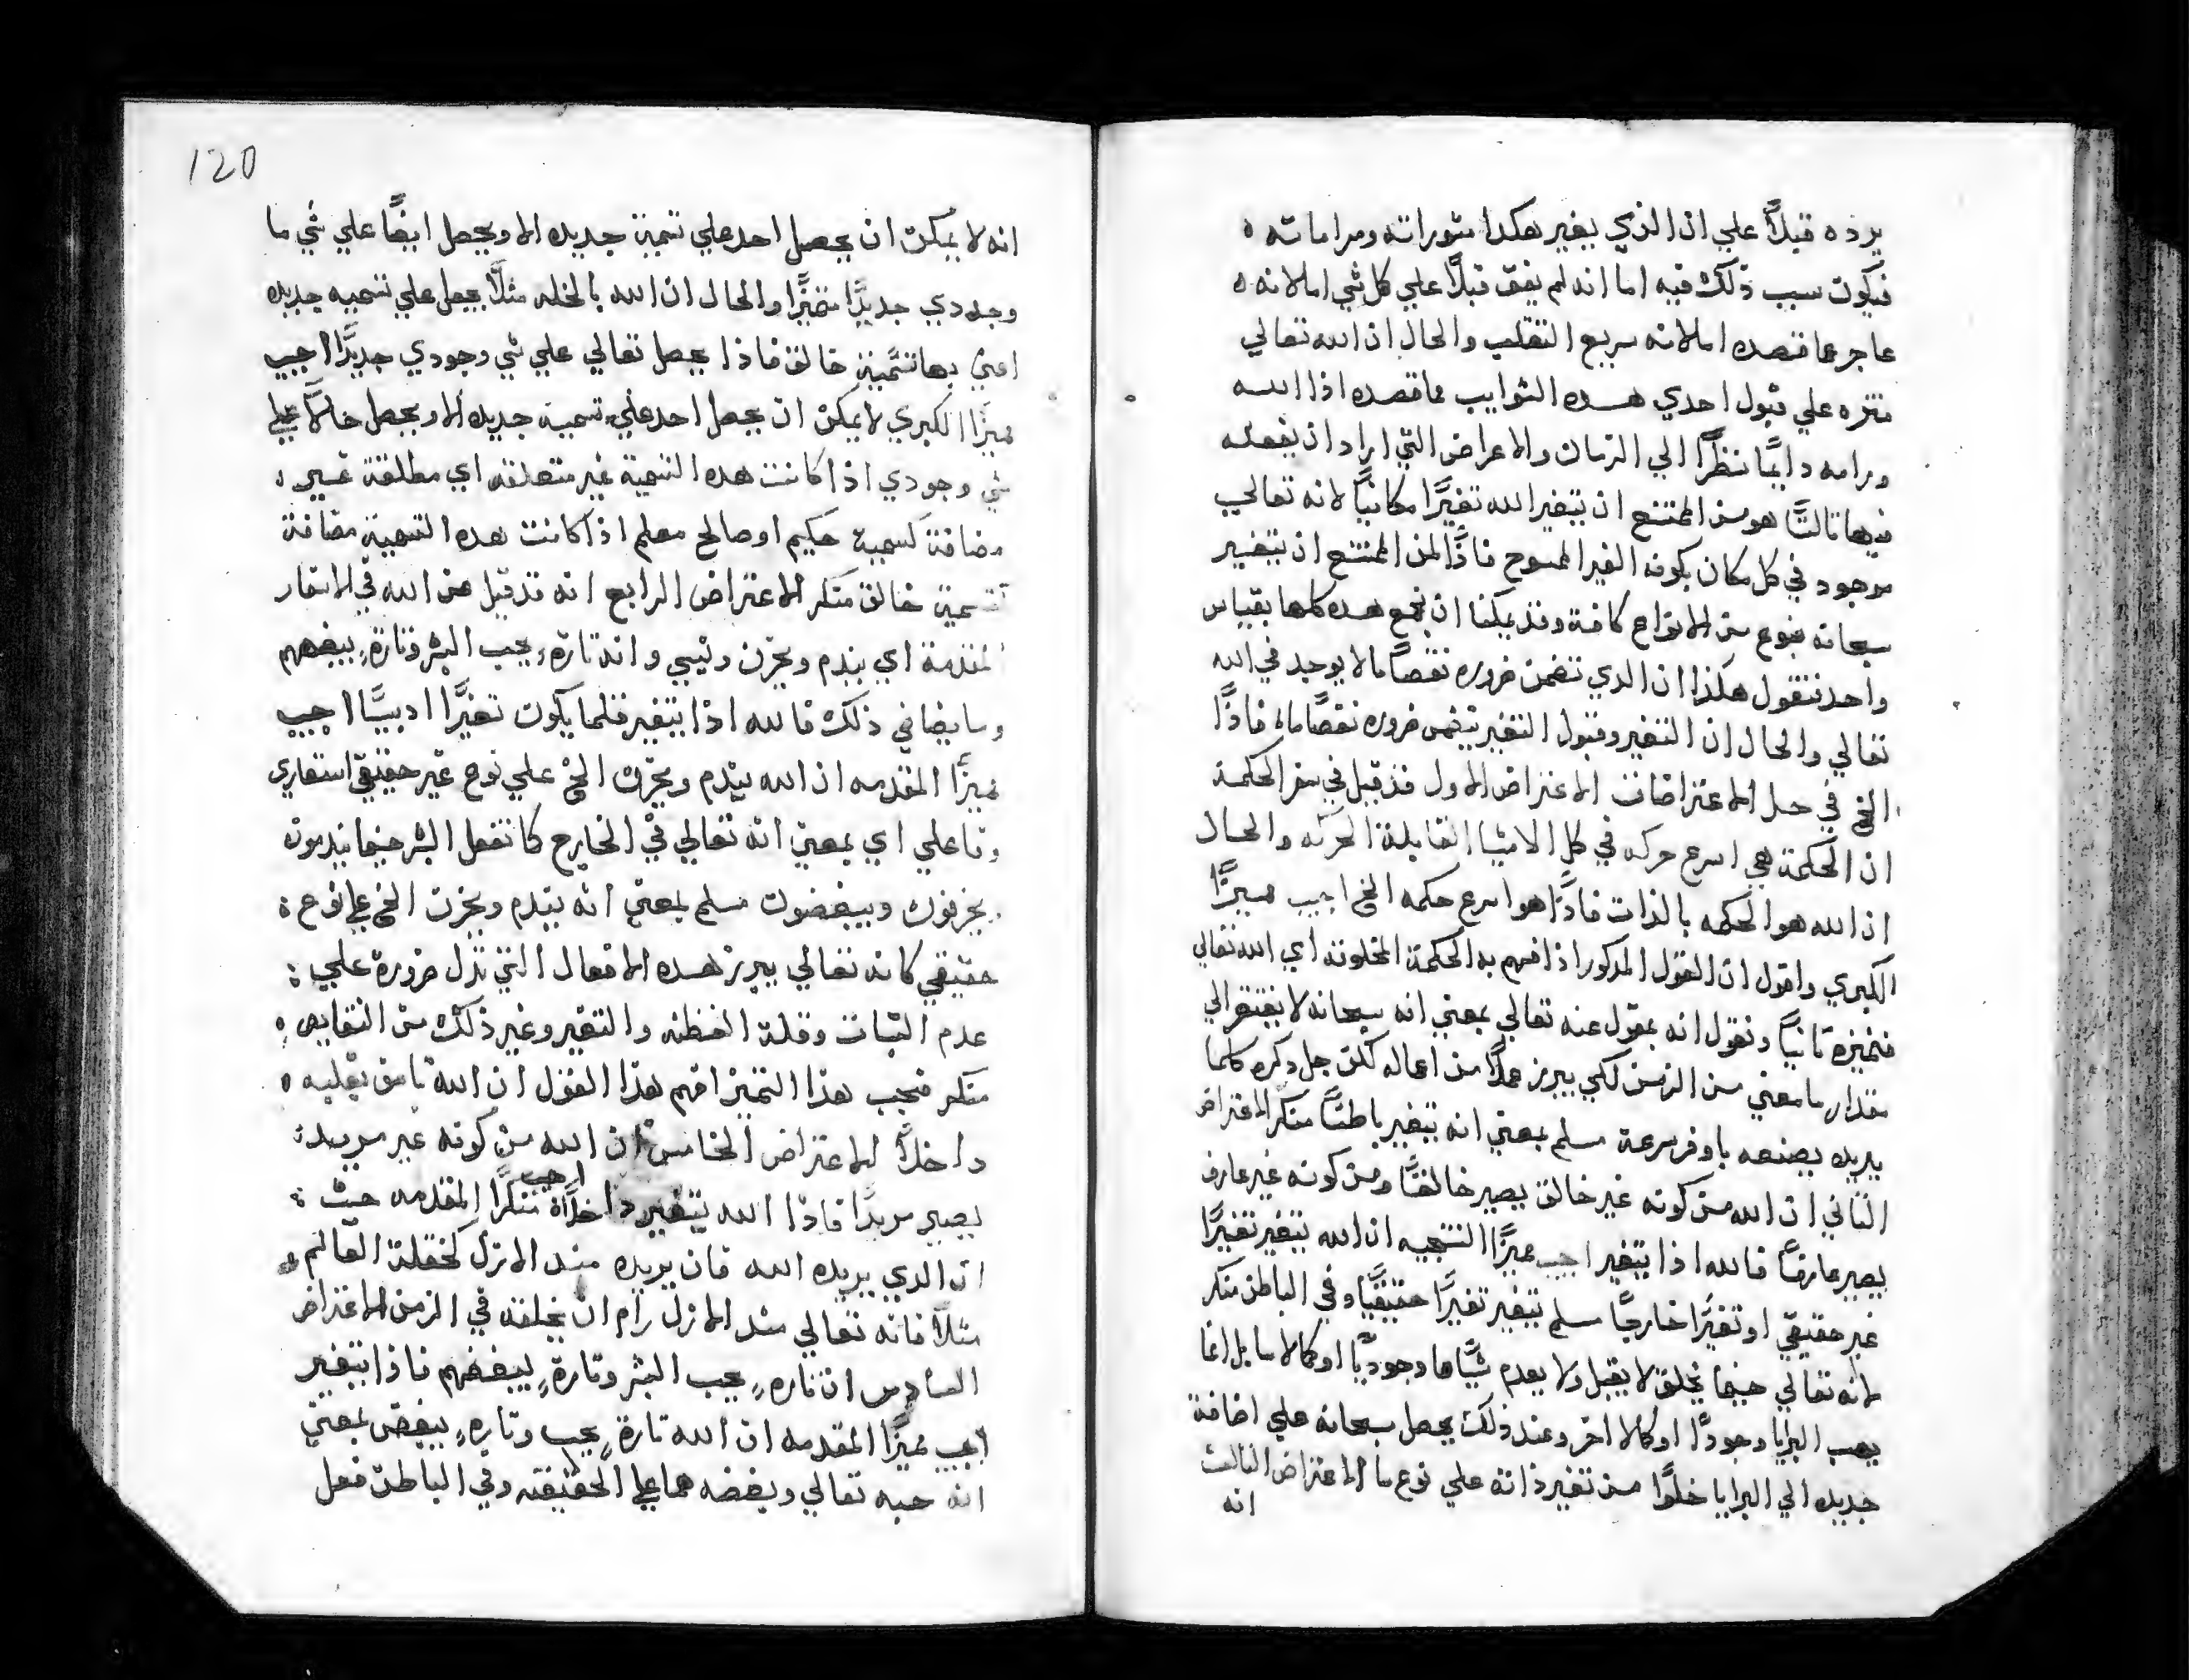 يرده قبلاً علي ان الذي يغير هكدا مثوراته ومراماته ه
فيكون سبب ذلك فيه اما انه لم يفق قبلاً علي كل شي اما لانه ه
عاجر عما قصده اما لانه سريع التقلب والحال ان الله تعالي
منزه علي قبول احدي هده الثوايب فما قصده اذا الله
ورامه دايمًا نظرًا الي الزمان والاعراض التي اراد ان يفعله
فيها ثالثًا هو من الممتنع ان يتغير الله تغيرًا مكانيًا لانه تعالي
موجود في كل مكان بكونه الغير الممسوح فاذًا من الممتنع ان يتغير
سبحانه بنوع من الانواع كافة وقد يمكنا ان نجمع هده كلها بقياس
واحد فنقول هكذا ان الدي تضمن ضروره نقصًا ما لا يوجد في الله
تعالي والحال ان التغير وقبول التغير يتضمن ضروره نقصًا ما فاذًا
الخ في حل الاعتراضات الاعتراض الاول قد قيل في سفر الحكمة
ان الحكمة هي اسرع حركه في كل الاشيا القابلة الحركه والحال
ان الله هو الحكمه بالذات فاذًا هو اسرع حكمه الخ اجيب مميزًا
الكبري واقول ان القول المدكور اذا فهم به الحكمة المخلوقه اي الله تعالي
فنميزه ثانيًا ونقول انه بمقول عنه تعالي بمعني انه سبحانه لا يفتقر الي
مقدار ما معني من الزمن لكي يبرز عملاً من اعماله لكن جل دكره كلما
يريده يصنعه باوفر سرعة مسلم بمعني انه يتغير باطنًا منكر الاعتراض
الثاني ان الله من كونه غير خالق يصير خالقًا ومن كونه غير عارف
يصير عارفًا فالله اذا يتغير اجيب مميزًا النتيجيه ان الله يتغير تغيرًا
غير حقيقي او تغيرًا خارجيًا مسلم يتغير تغيرًا حقيقيًا وفي الباطن منكر
لانه تعالي حينما يخلق لا يقبل ولا يعدم شيًا ما وجوديًا او كمالا ما بل انما
يهب البرايا وجودًا او كمالا اخر وعند ذلك يحصل سبحانه علي اضافة
جديده الي البرايا خلوًا من تغير ذاته علي نوع ما الاعتراض الثالث
انه
120
انه لا يمكن ان يحصل احد علي تسمية جديده الا ويحصل ايضًا علي شي ما
وجودي جديدًا متميزًا والحال ان الله بالخلقه مثلاً يحصل علي تسميه جديده
اعني بها تسمية خالق فاذا يحصل تعالي علي شي وجودي جديدًا اجيب
مميزًا الكبري لا يمكن ان يحصل احد علي تسمية جديده الا ويحصل حالاً علي
شي وجودي اذا كانت هده التسمية غير متعلقه اي مطلقة غير
مضافة كتسمية حكيم او صالح معلم اذا كانت هده التسمية مضافة
كتسمية خالق منكر الاعتراض الرابع انه قد قيل عن الله في الاسفار
المقدمة اي يندم ويحزن ونيبي وانه تارةً يحب البشر وتارةً يبغضهم
وما يضاهي ذلك فالله اذًا يتغير قلما يكون تغيرًا ادبيًا اجيب
مميزًا المقدمه ان الله يندم ويحزن الخ علي نوع غير حقيقي استعاري
وفاعلي اي بمعني انه تعالي في الخارج كما تفعل البشر حينما يندمون
يحزنون ويبغضون مسلم بمعني انه يندم ويحزن الخ علي نوع
حقيقي كانه تعالي يبرز هده الافعال التي تدل ضرورة علي
عدم الثبات وقلة الفطنه والتغير وغير ذلك من النقايص
منكر فيجب هذا التمييز افهم هذا القول ان الله تاسف بقلبه ه
داخلاً الاعتراض الخامس ان الله من كونه غير مريد
اجيب
يصير مريدًا فاذا الله يتغير داخلاً منكرًا المقدمه حيث
ان الدي يريده الله فان يريده منذ الازل كخلقة العالم
مثلاً فانه تعالي منذ الازل رام ان يخلقه في الزمن الاعتراض
السادس ان تارةً يحب البشر وتارةً يبغضهم فاذا يتغير
اجيب مميزًا المقدمه ان الله تارةً يحب وتارةً يبغض بمعني
انه حبه تعالي وبغضه هما علي الحقيقه وفي الباطن فعل